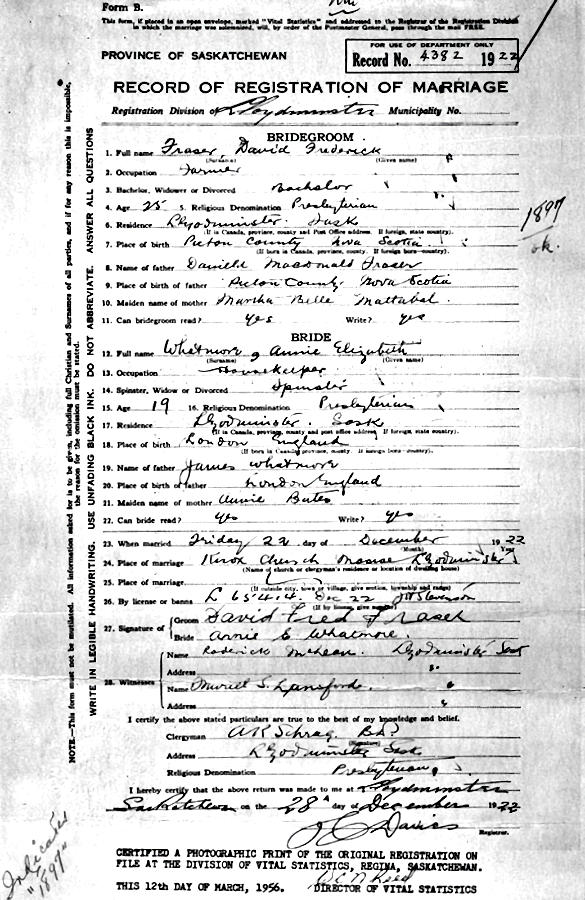 Form B.
This form, if placed in an open envelope, marked "Vital Statistics" and addressed to the Registrar of the Registration Division
in which the marriage was solemnized, will, by order of the Postmaster General, pass through the mail FREE.
PROVINCE OF SASKATCHEWAN
FOR USE OF DEPARTMENT ONLY
Record No. 4382 1922
RECORD OF REGISTRATION OF MARRIAGE
Registration Division of Lloydminster Municipality No.
BRIDEGROOM
1. Full name Fraser, David Frederick
(Surname) (Given name)
2. Occupation Farmer
3. Bachelor, Widower or Divorced Bachelor
4. Age 25 5. Religious Denomination Presbyterian
6. Residence Lloydminster Sask
(If in Canada, province, county and Post Office address. If foreign, state country).
7. Place of birth Pictou County Nova Scotia
(If born in Canada, province, county. If foreign born—country).
8. Name of father Daniel Macdonald Fraser
9. Place of birth of father Pictou County Nova Scotia
10. Maiden name of mother Martha Belle
11. Can bridegroom read? Yes Write? Yes
BRIDE
12. Full name Whatmore, Annie Elizabeth
(Surname) (Given name)
13. Occupation Housekeeper
14. Spinster, Widow or Divorced Spinster
15. Age 19 16. Religious Denomination Presbyterian
17. Residence Lloydminster. Sask
(If in Canada, province, county and post office address. If foreign, state country).
18. Place of birth London England
(If born in Canada, province, county. If foreign born—country).
19. Name of father James Whatmore
20. Place of birth of father London England
21. Maiden name of mother Annie Bates
22. Can bride read? Yes Write? Yes
23. When married Friday 22 day of December 1922
(Month) Year
24. Place of marriage Knox Church Manse Lloydminster
(Name of church or clergyman's residence or location of dwelling house)
25. Place of marriage
(If outside city, town or village, give section, township and range)
26. By license or banns L 65414 Dec 22 Stevenson
(If by license, give number)
27. Signature of Groom David Fred Fraser
Bride Annie E Whatmore.
28. Witnesses Name Roderick McLean. Lloydminster Sask
Address
Name Muriel S. Lansford.
Address
I certify the above stated particulars are true to the best of my knowledge and belief.
Clergyman A K Schrag BA
(Signature)
Address Lloydminster Sask
Religious Denomination Presbyterian
I hereby certify that the above return was made to me at Lloydminster
Saskatchewan on the 28th day of December 1922
Davies
Registrar.
CERTIFIED A PHOTOGRAPHIC PRINT OF THE ORIGINAL REGISTRATION ON
FILE AT THE DIVISION OF VITAL STATISTICS, REGINA, SASKATCHEWAN.
THIS 12th DAY OF MARCH, 1956. DIRECTOR OF VITAL STATISTICS
NOTE.—This form must not be mutilated. All information asked for is to be given, including full Christian and Surnames of all parties, and if for any reason this is impossible,
the reason for the omission must be stated.
WRITE IN LEGIBLE HANDWRITING. USE UNFADING BLACK INK. DO NOT ABBREVIATE. ANSWER ALL QUESTIONS
1897
ok.
Indicates
"1897"